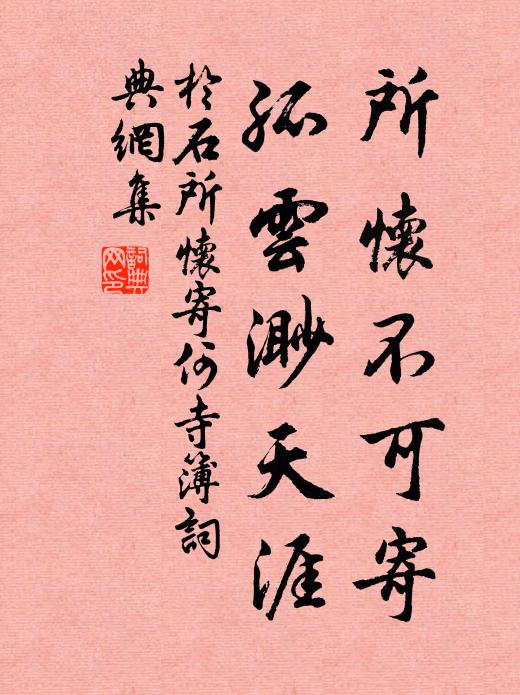 所懷不可寄
孤雲渺天涯
於石所懷寄何寺簿詞
典網集
詞典
网印